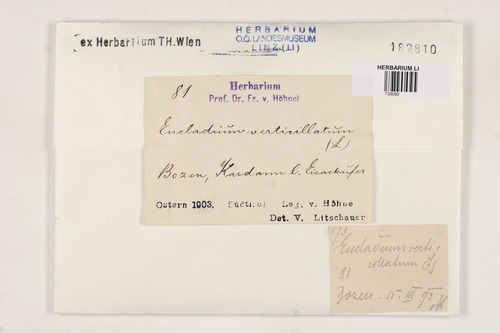 ex Herbarium TH.Wien
HERBARIUM
O.Ö. LANDESMUSEUM
LINZ (LI)
182810
HERBARIUM LI
81
Herbarium
Prof. Dr. Fr. v. Höhnel
Eucladium verticillatum
(L)
Bozen, Kardaun l. Eisackufer
Ostern 1903. Südtirol Leg. v. Höhne
Det. V. Litschauer
Eucladium verti-
cillatum
81
Bozen. 15. III